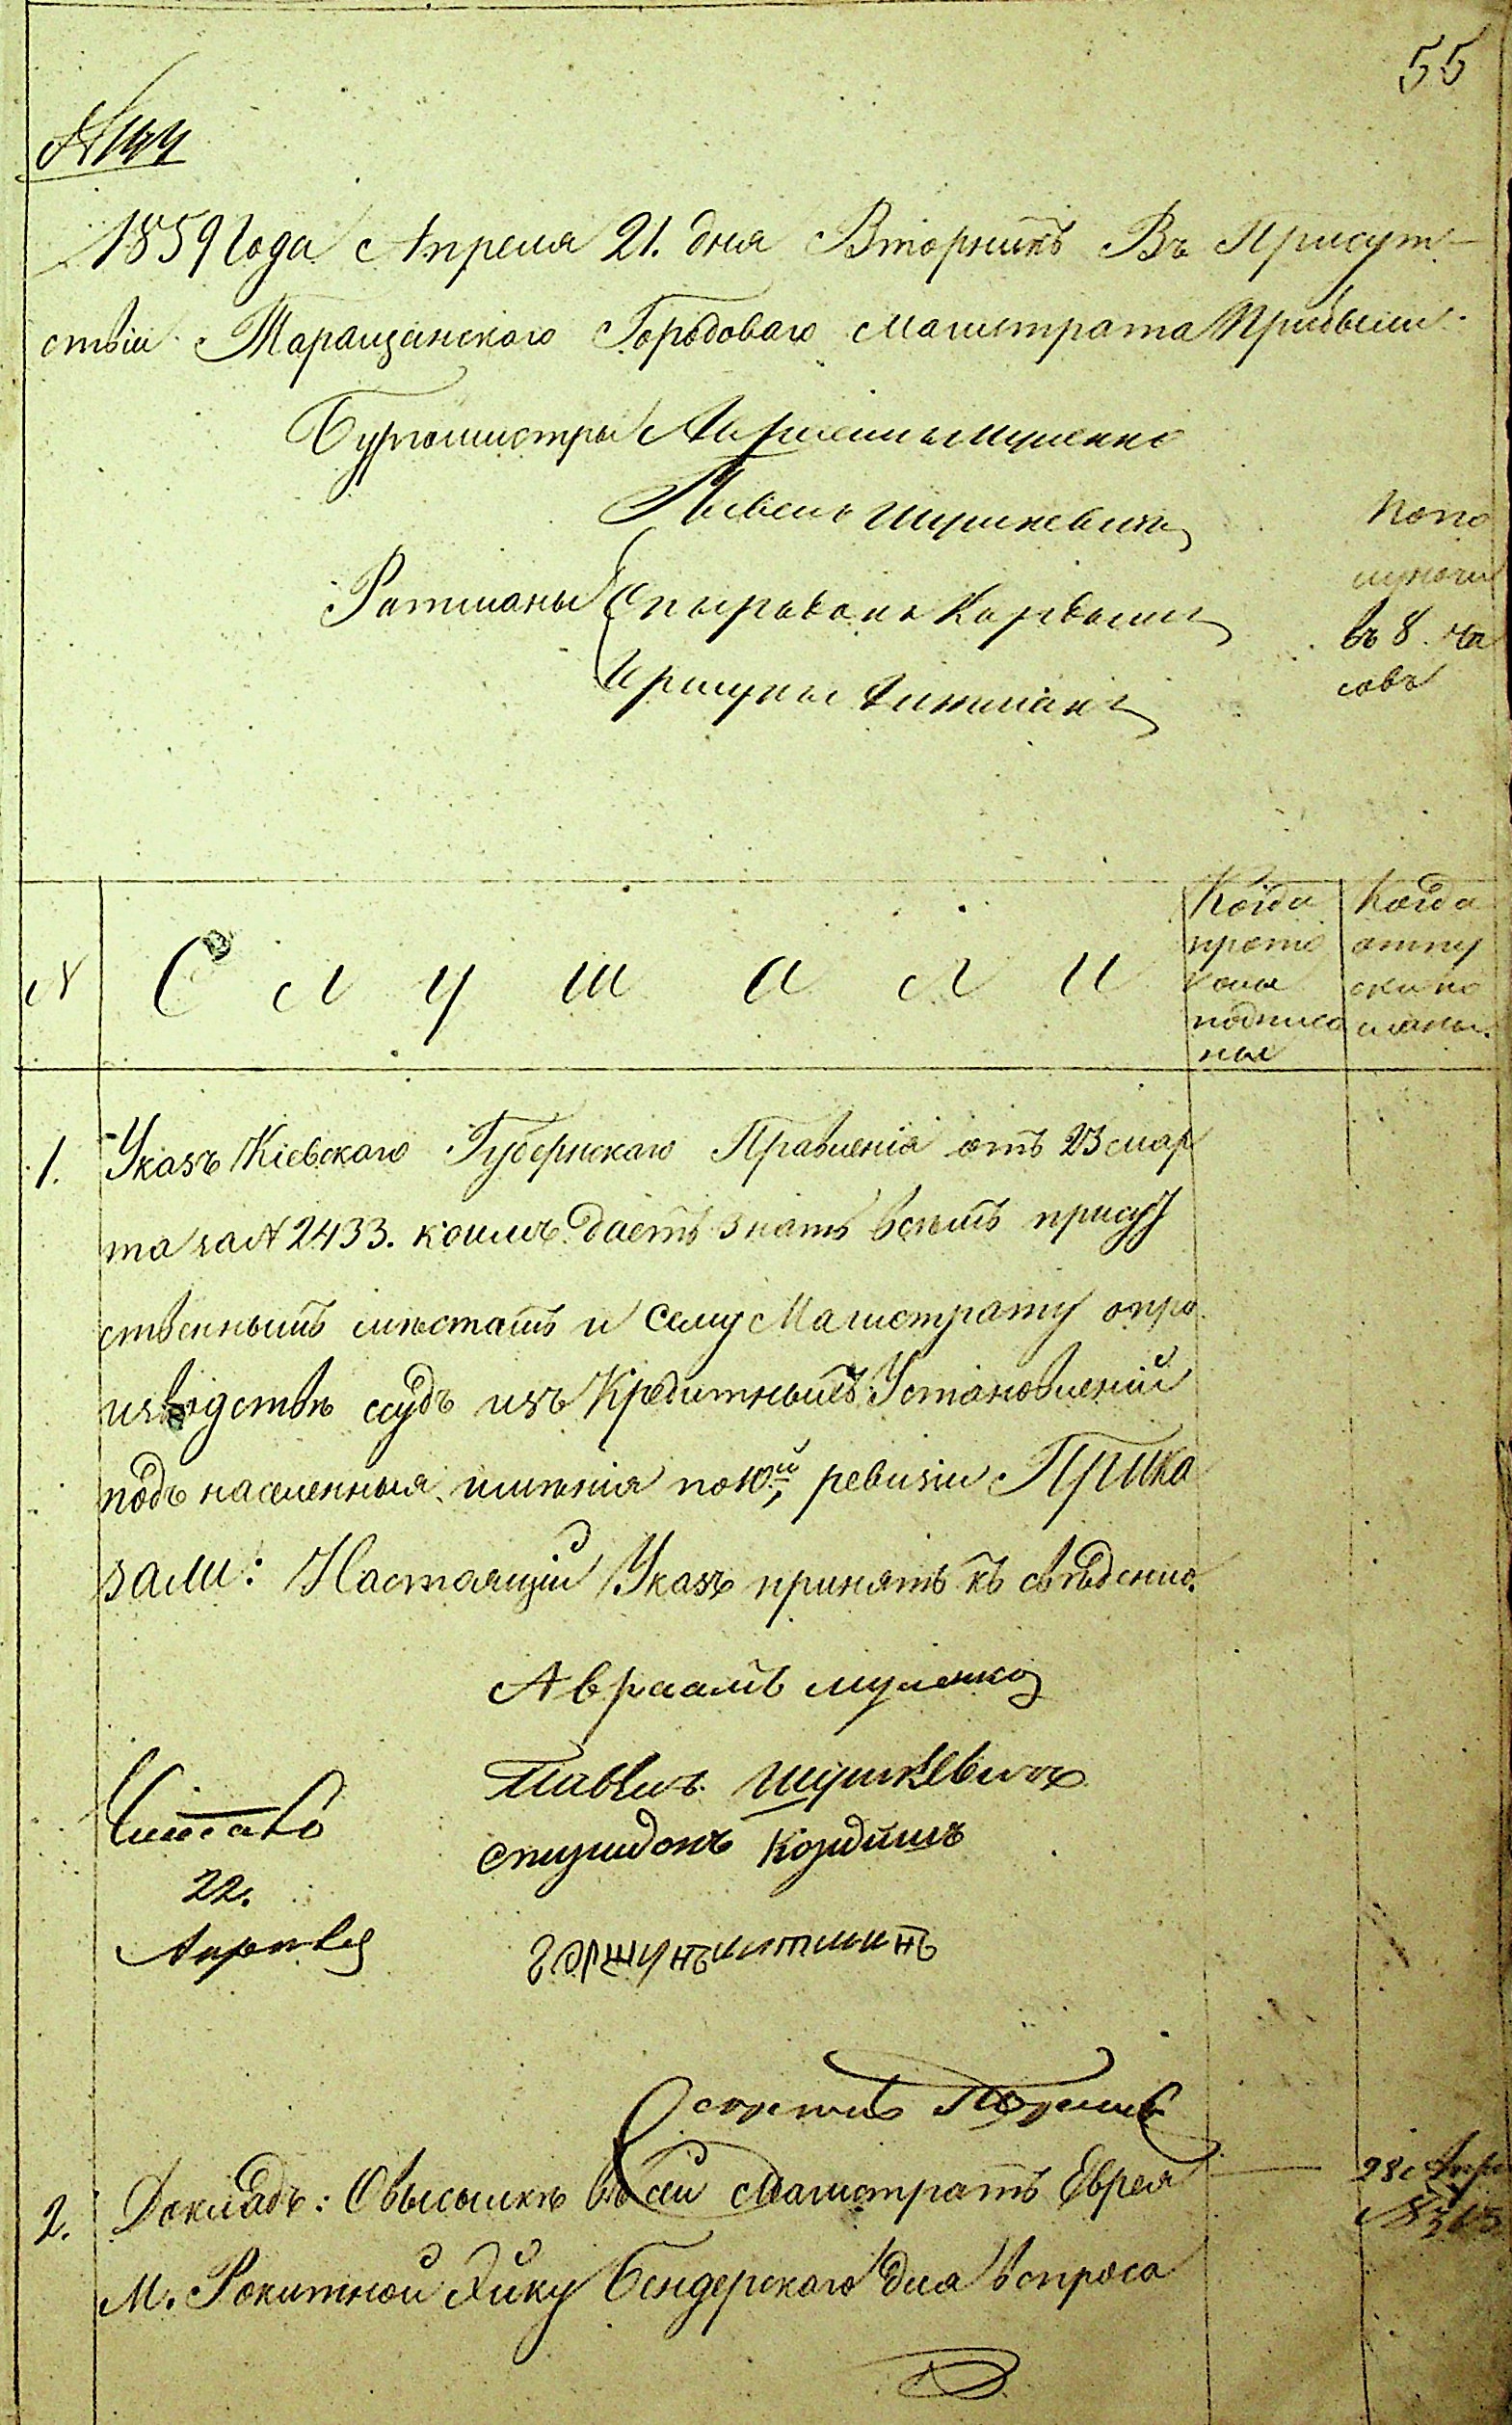 55
№ 44
1859 Года Апреля 21. дня Вторникъ Въ Присут-
ствіи Таращанского Городоваго Магистрата Прибыли
Бургомистры Авраамъ Муленко
Павелъ Шушкевичъ
Попо
лудни
Ратманы Спыридонъ Кордышъ
въ 8. ча
совъ
Гершунъ
№
Слушали
Когда
прото
колы
подписа
ны
Когда
отпу
ски по
сланы.
1. Указъ Кіевскаго Губернскаго Правленія отъ 23 мар
та за № 2433. коимъ даетъ знать всемъ присуд
ственнымъ местамъ и сему Магистрату о про
изводстве ссудъ изъ Кредитныхъ Установленій
подъ населенныя именія по 10й ревизіи Прика
зали: Настоящій Указъ принять къ сведенію.
Авраамъ муленко
Павелъ шушкевичъ
спиридонъ Кордишъ
Читалъ
22.
Апреля
гершунъ
Секретарь
2. Докладъ: О высылке въ сей Магистратъ Еврея
28 Апре
№ 313
М. Рокитной Яйку Бендерского для вспроса